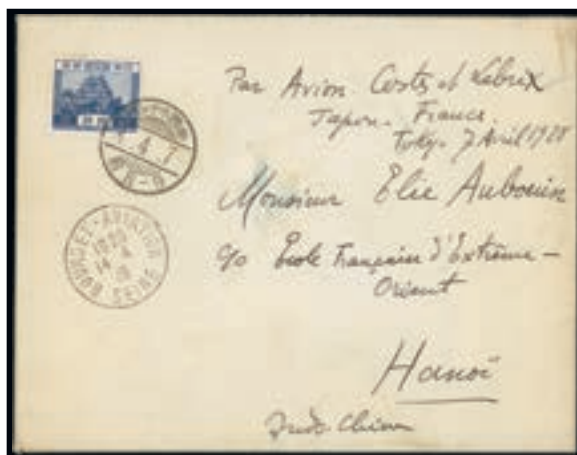 Par Avion Costes et Lebrix
Japon - France
Tokyo 7 Avril 1928
Monsieur Elie Aubouin
c/o Ecole Française d'Extrême-
Orient
Hanoï
Indo Chine
4 7
BOURGET-AVIATION
SEINE